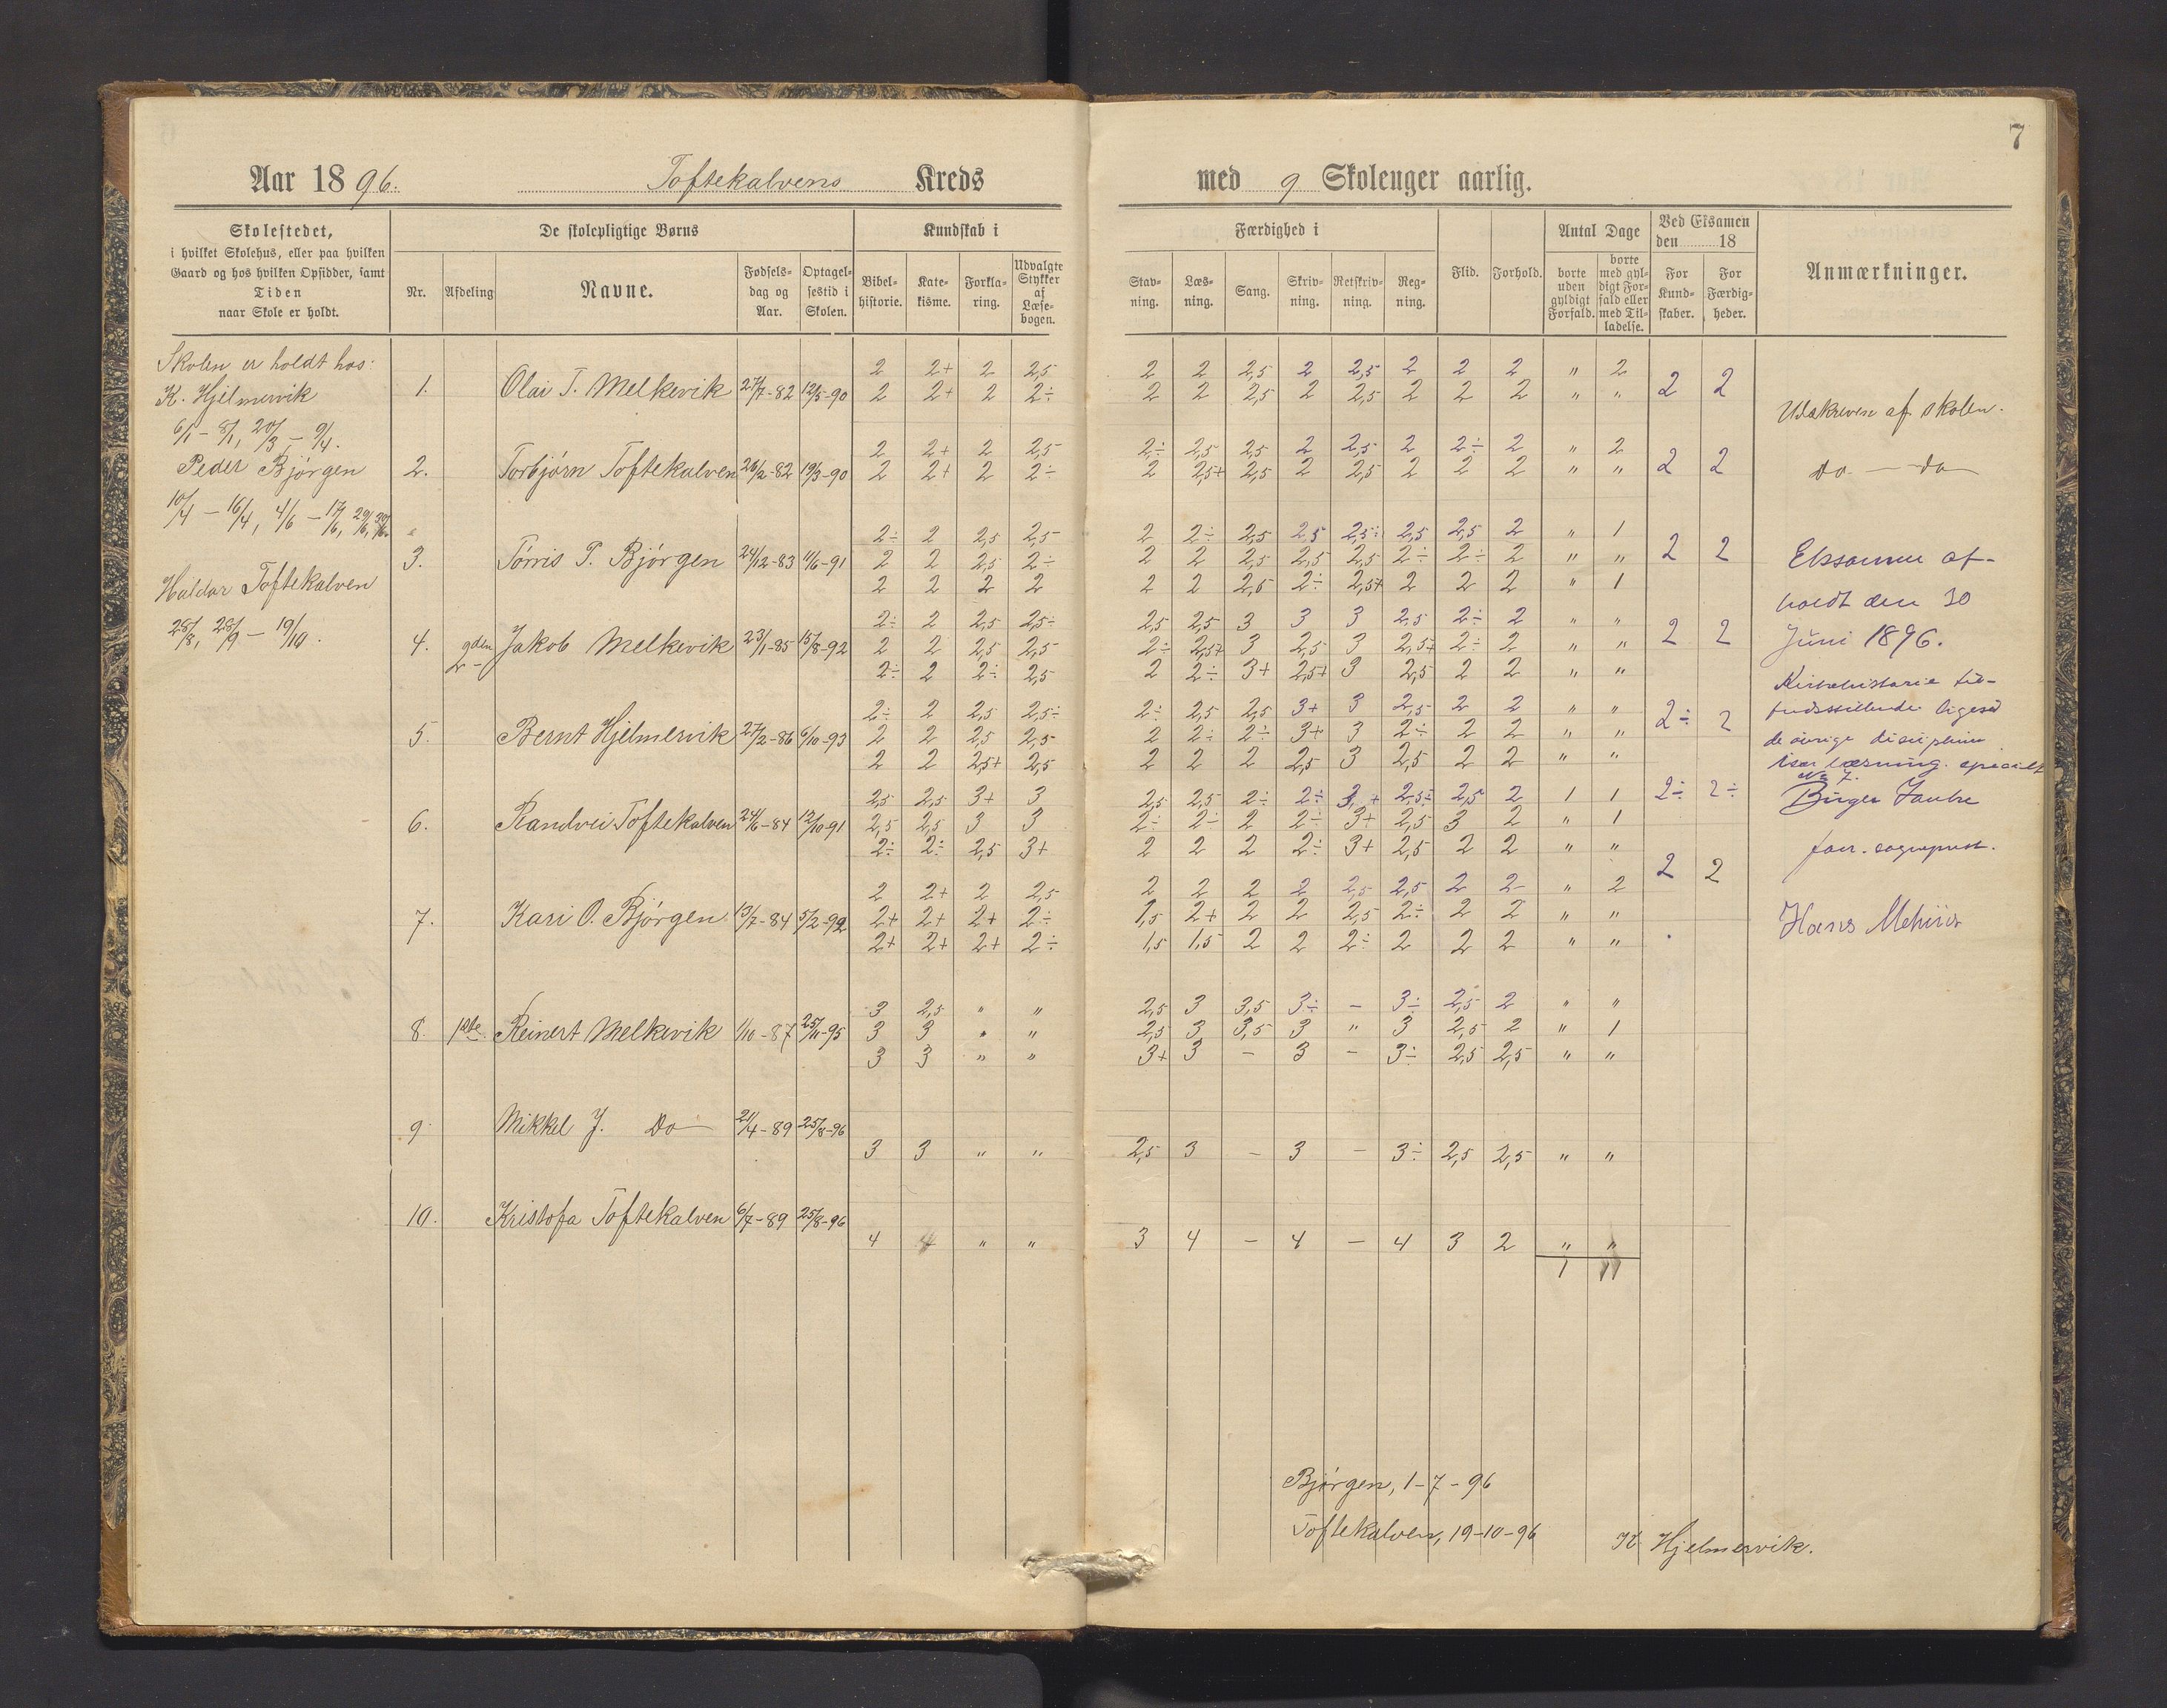 7
Aar 1896. Toftekalvens Kreds med 9 Skoleuger aarlig.
Skolestedet,
i hvilket Skolehus, eller paa hvilken
Gaard og hos hvilken Opsidder, samt
Tiden
naar Skole er holdt.
De skolepligtige Børns
Nr. Afdeling Navne. Fødsels-dag og Aar. Optagel-sestid i Skolen.
Kundskab i
Bibel-historie. Kate-kisme. Forkla-ring. Udvalgte Stykker af Læse-bogen.
Færdighed i
Stav-ning. Læs-ning. Sang. Skriv-ning. Retskriv-ning. Reg-ning. Flid. Forhold.
Antal Dage
borte uden gyldigt Forfald. borte med gyl-digt For-fald eller med Til-ladelse.
Ved Eksamen
den 18
For Kund-skaber. For Færdig-heder.
Anmærkninger.
Skolen er holdt hos
K. Hjelmervik
6/1 – 8/1, 20/3 – 9/4.
Peder Bjørgen
10/4 – 16/4, 4/6 – 17/6, 29/6, 30/6.
Haldor Toftekalven
28/8, 28/9 – 19/10.
2 2+ 2 2,5 2 2 2,5 2 2,5 2 2 2 " 2
1. Olai T. Melkevik 27/7-82 12/5-90 2 2+ 2 2÷ 2 2 2,5 2 2,5 2 2 2 " " 2 2
Udskreven af skolen.
2 2+ 2 2,5 2÷ 2,5 2,5 2 2,5 2 2÷ 2 " 2
2. Torbjørn Toftekalven 26/2-82 19/3-90 2 2+ 2 2÷ 2 2,5+ 2,5 2 2,5 2 2 2 " " 2 2
do — do
2÷ 2 2,5 2,5 2 2÷ 2,5 2,5 2,5÷ 2,5 2,5 2 " 1
3. Tørris P. Bjørgen 24/12-83 11/6-91 2 2 2,5 2÷ 2 2 2,5 2,5 2,5 2÷ 2÷ 2 " " 2 2
2 2 2 2 2 2 2,5 2÷ 2,5+ 2 2 2 " 1
2÷ 2 2,5 2,5÷ 2,5 2,5 3 3 3 2,5 2÷ 2 " "
4. Jakob Melkevik 23/1-85 15/8-92 2 2 2,5 2,5 2÷ 2,5+ 3 2,5 3 2,5+ 2÷ 2 " " 2 2
2÷ 2 2÷ 2,5 2 2÷ 3+ 2,5+ 3 2,5 2 2 " "
2÷ 2 2,5 2,5÷ 2÷ 2,5 2,5 3+ 3 2,5 2 2 " "
5. Bernt Hjelmervik 27/2-86 6/10-93 2 2 2,5 2,5 2 2÷ 2÷ 3+ 3 2÷ 2 2 " " 2÷ 2
2 2 2,5+ 2,5 2 2 2 2,5 3 2,5 2 2 " "
2,5 2,5 3+ 3 2,5 2,5 2÷ 2÷ 3+ 2,5÷ 2,5 2 1 1 2÷ 2÷
6. Randvei Toftekalven 24/6-84 12/10-91 2,5 2,5 3 3 2÷ 2÷ 2 2÷ 3+ 2,5 3 2 " 1
2÷ 2÷ 2,5 3+ 2 2 2 2÷ 3+ 2,5 2 2 " "
2 2+ 2 2,5 2 2 2 2 2,5 2,5 2 2 " 2 2 2
7. Kari O. Bjørgen 13/7-84 5/2-92 2+ 2+ 2+ 2÷ 1,5 2+ 2 2 2,5 2÷ 2 2 " "
2+ 2+ 2+ 2÷ 1,5 1,5 2 2 2÷ 2 2 2 " "
3 2,5 " " 2,5 3 3,5 3÷ – 3÷ 2,5 2 " "
8. 1ste Reinert Melkevik 1/10-87 25/11-95 3 3 " " 2,5 3 3,5 3 " 3 2,5 2 " 1
3 3 " " 3+ 3 – 3 – 3÷ 2,5 2,5 " "
9. Mikkel J. Do 21/4-89 25/8-96
3 3 " " 2,5 3 – 3 – 3÷ 2,5 2,5 " "
10. Kristofa Toftekalven 6/7-89 25/8-96
4 4 " " 3 4 – 4 – 4 3 2 " "
1 11
Eksamen af-
holdt den 30
Juni 1896.
Kirkehistorie til-
fredsstillende ligesaa
de øvrige discipliner
især læsning. specielt
No 7.
Hans
Bjørgen, 1-7-96
Toftekalven, 19-10-96 K. Hjelmervik.